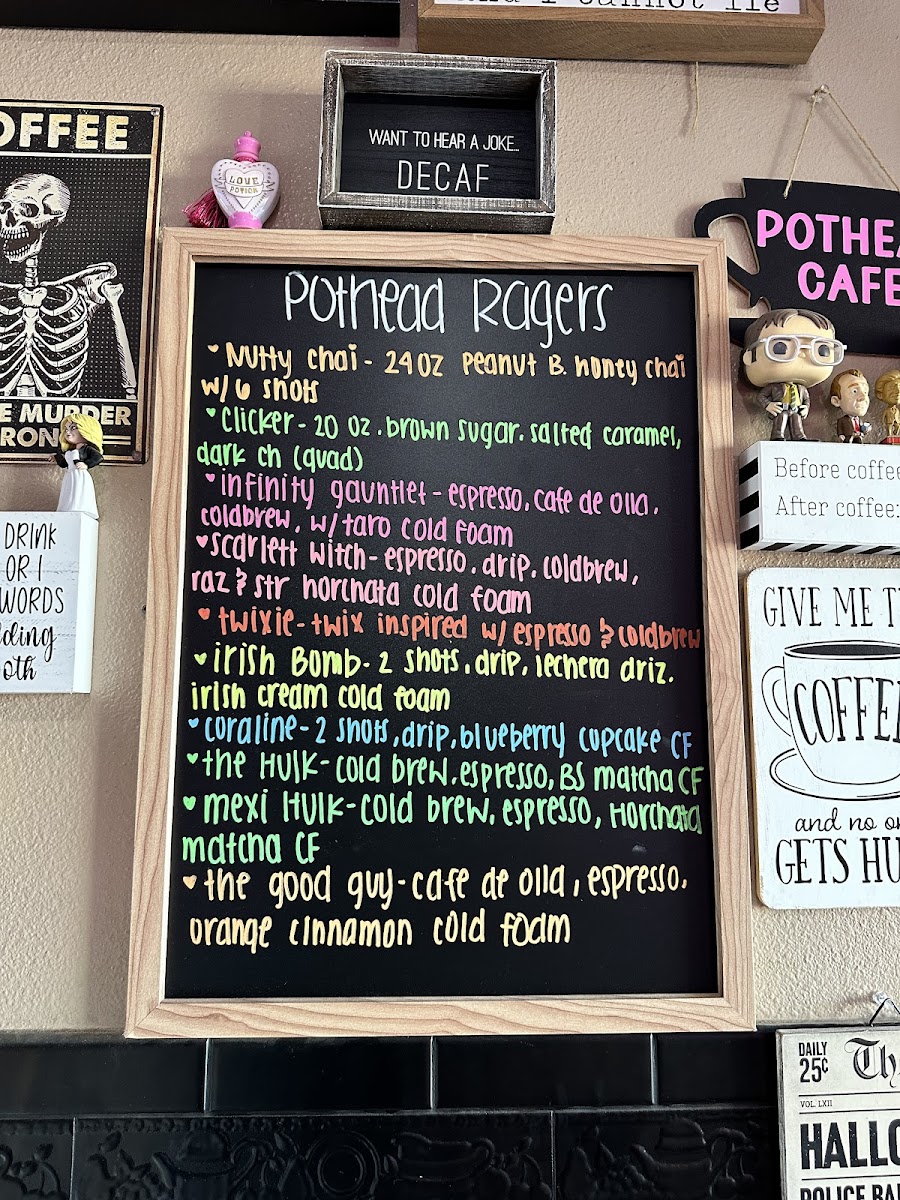 and I cannot lie
OFFEE
WANT TO HEAR A JOKE...
DECAF
LOVE
POTION
POTHEA
CAFE
Pothead Ragers
♥ Nutty chai - 24 oz Peanut B. honey chai
w/ 6 shots
♥ Clicker - 20 oz. brown sugar. salted caramel,
dark ch (quad)
♥ infinity gauntlet - espresso, cafe de olla,
coldbrew, w/ taro cold foam
♥ scarlett witch - espresso, drip, coldbrew,
raz & str horchata cold foam
♥ twixie - twix inspired w/ espresso & coldbrew
♥ irish Bomb - 2 shots, drip, lechera driz.
irish cream cold foam
♥ coraline - 2 shots, drip, blueberry cupcake CF
♥ the Hulk - cold brew, espresso, BS matcha CF
♥ mexi Hulk - cold brew, espresso, Horchata
matcha CF
♥ the good guy - cafe de olla, espresso,
orange cinnamon cold foam
E MURDER
RONG
DRINK
OR I
WORDS
oth
Before coffee
After coffee:
GIVE ME T
COFFE
and no o
GETS HU
DAILY
25¢
Th
VOL. LXII
HALLO
POLICE BA